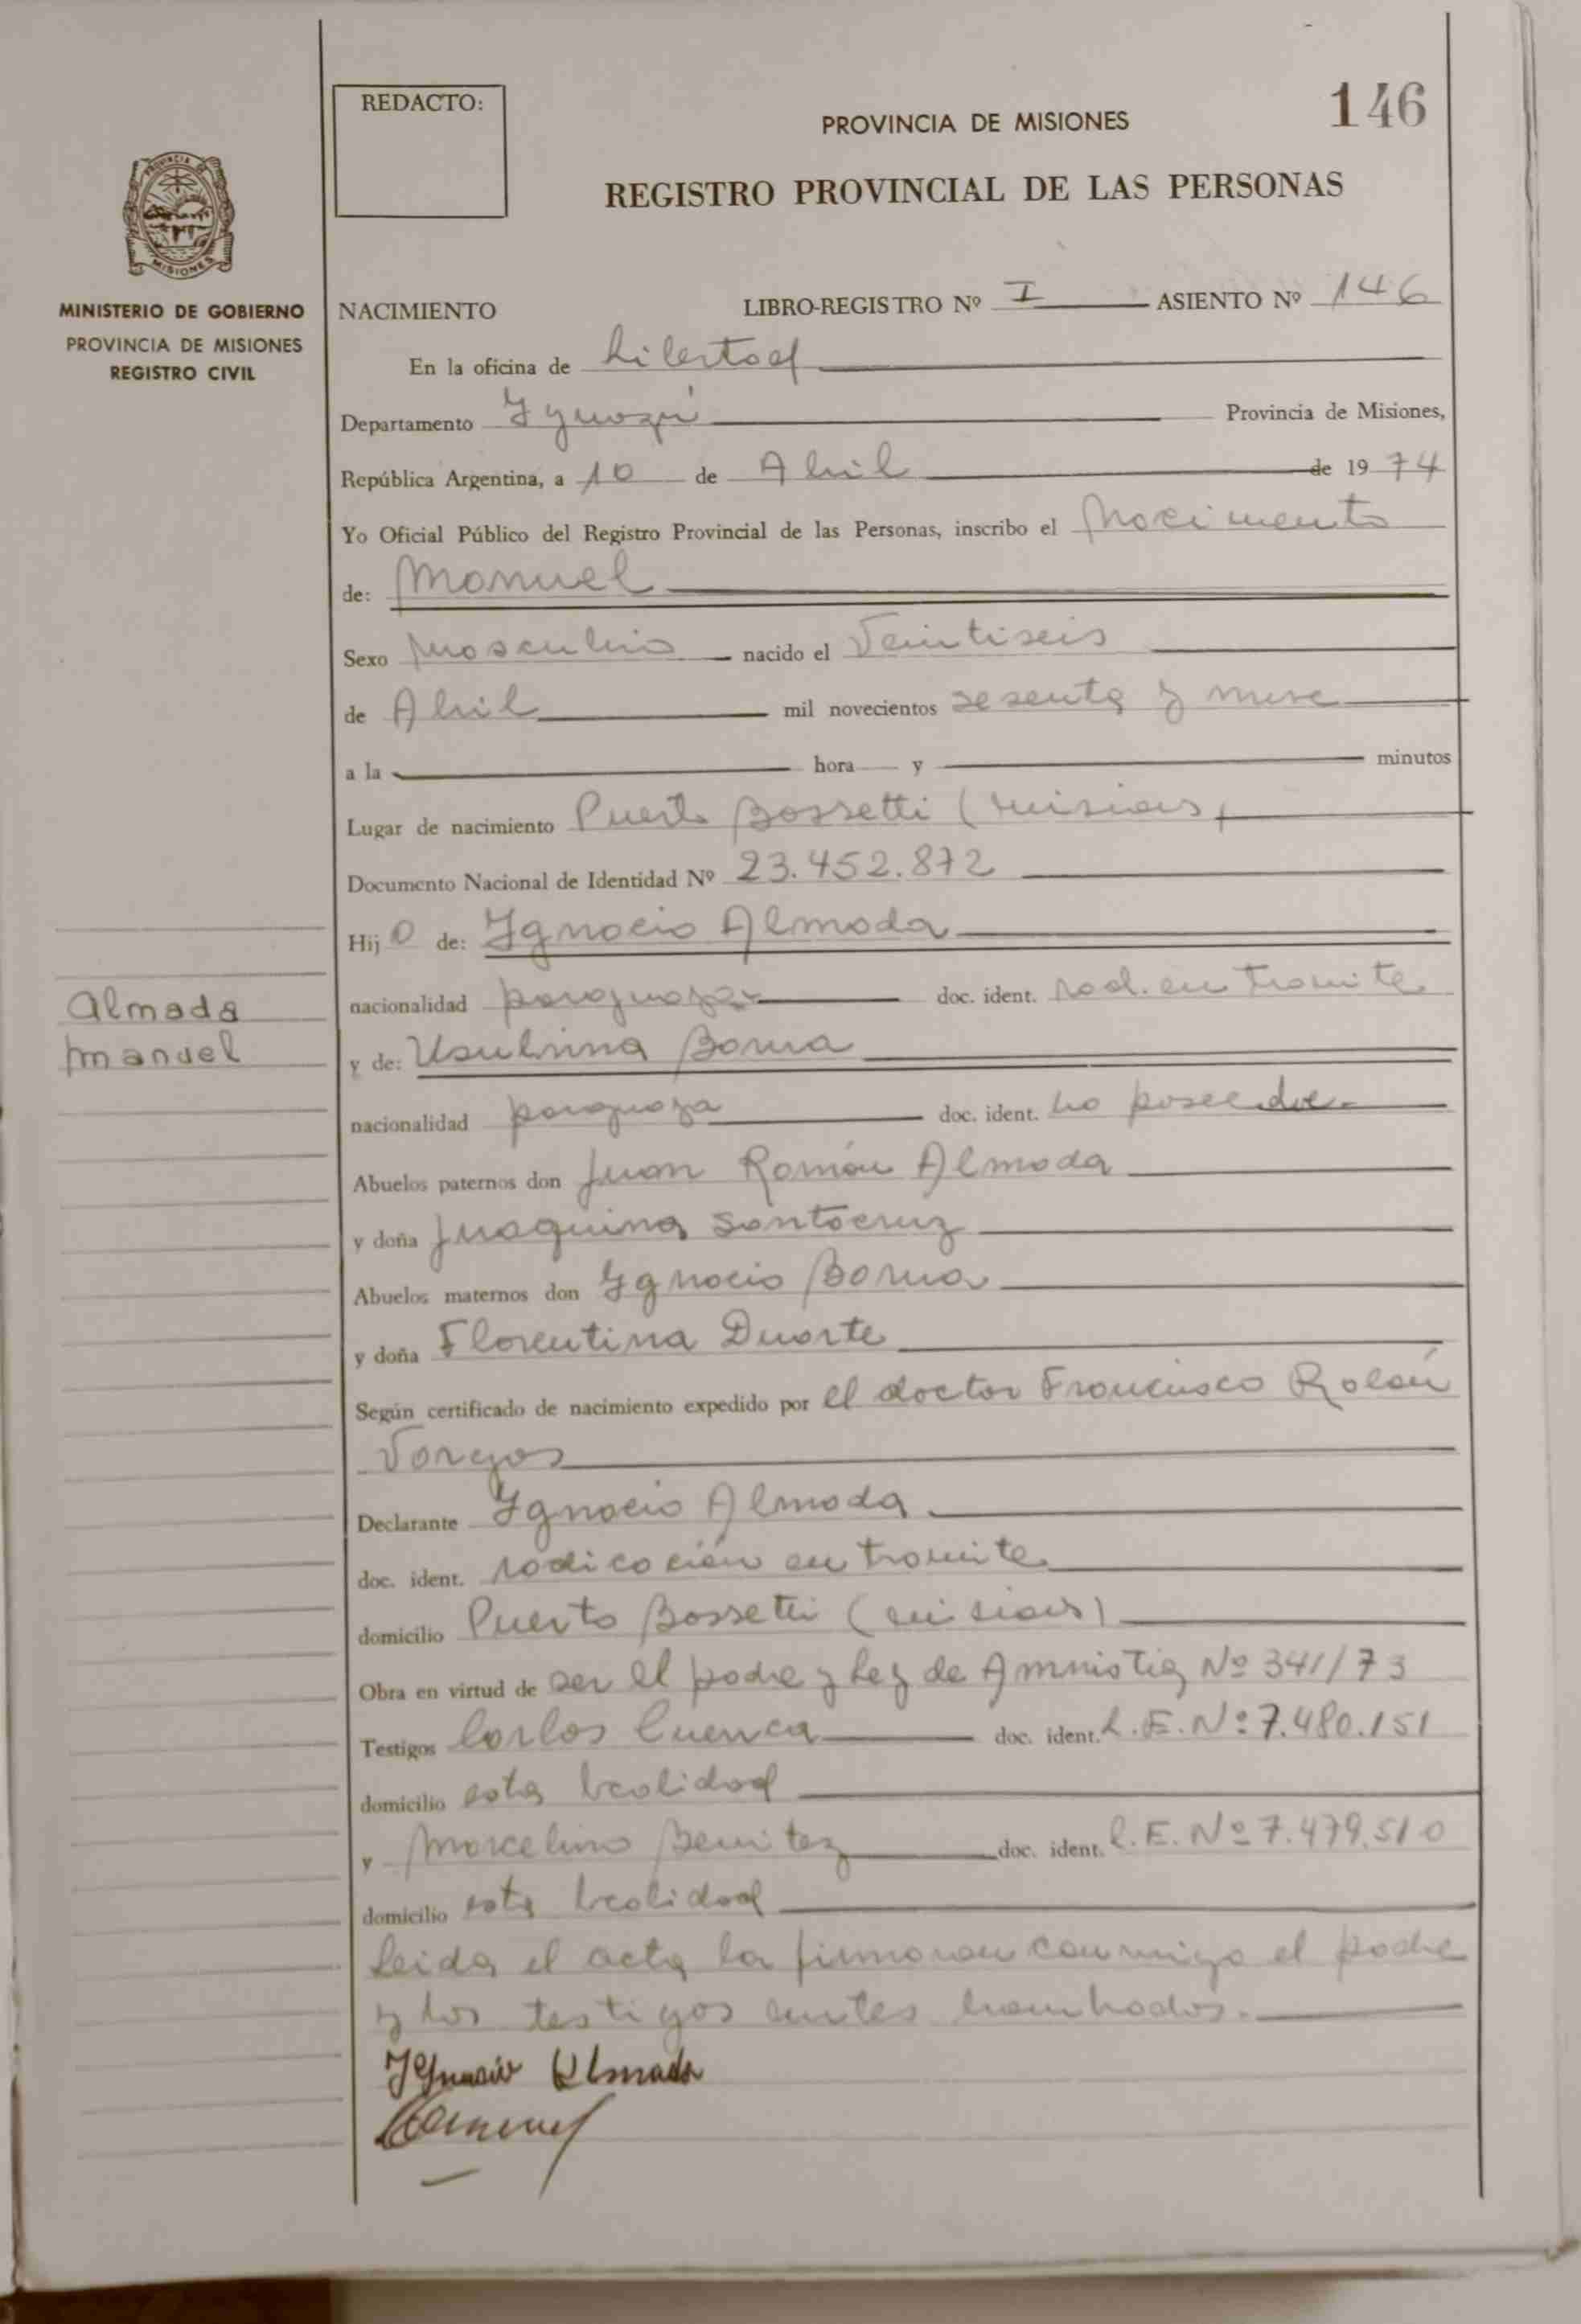 REDACTO:
146
PROVINCIA DE MISIONES
REGISTRO PROVINCIAL DE LAS PERSONAS
PROVINCIA DE
MISIONES
MINISTERIO DE GOBIERNO
PROVINCIA DE MISIONES
REGISTRO CIVIL
NACIMIENTO LIBRO-REGISTRO Nº I ASIENTO Nº 146
En la oficina de Libertad
Departamento Yguazú Provincia de Misiones,
República Argentina, a 10 de Abril de 1974
Yo Oficial Público del Registro Provincial de las Personas, inscribo el Nacimiento
de: Manuel
Sexo Masculino nacido el Veintiseis
de Abril mil novecientos sesenta y nueve
a la hora y minutos
Lugar de nacimiento Puerto Bossetti (Misiones)
Documento Nacional de Identidad Nº 23.452.872
Hijo de: Ygnacio Almada
nacionalidad paraguaya doc. ident. rad. en tramite
Almada
Manuel
y de: Usulinina Borna
nacionalidad paraguaya doc. ident. no posee
Abuelos paternos don Juan Román Almada
y doña Juaquina Santacruz
Abuelos maternos don Ygnacio Borna
y doña Florentina Duarte
Según certificado de nacimiento expedido por el doctor Francisco Rolón
Vargas
Declarante Ygnacio Almada
doc. ident. radicación en tramite
domicilio Puerto Bossetti (Misiones)
Obra en virtud de ser el padre y Ley de Amnistia Nº 341/73
Testigos Carlos Cuenca doc. ident. L.E. Nº 7.480.151
domicilio esta localidad
y Marcelino Benitez doc. ident. L.E. Nº 7.479.510
domicilio esta localidad
Leida el acta la firmaron conmigo el padre
y los testigos antes nombrados.
Ygnacio Almada